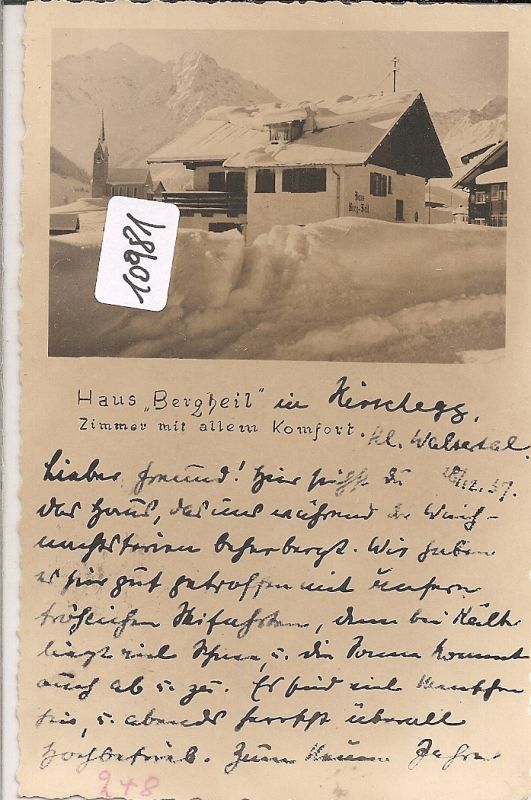 Haus Berg-Heil
10981
Haus „Bergheil" in Hirschegg,
Zimmer mit allem Komfort. Kl. Walsertal.
Lieber Freund! Hier siehst du 28/12.37.
das Haus, das uns während der Weih-
nachtsferien beherbergt. Wir haben
es hier gut getroffen mit unsern
fröhlichen Skifahrten, denn bei Kälte
liegt viel Schnee, u. die Sonne kommt
auch ab u. zu. Es sind viel Menschen
hier, u. abends herrscht überall
Hochbetrieb. Zum Neuen Jahre
248